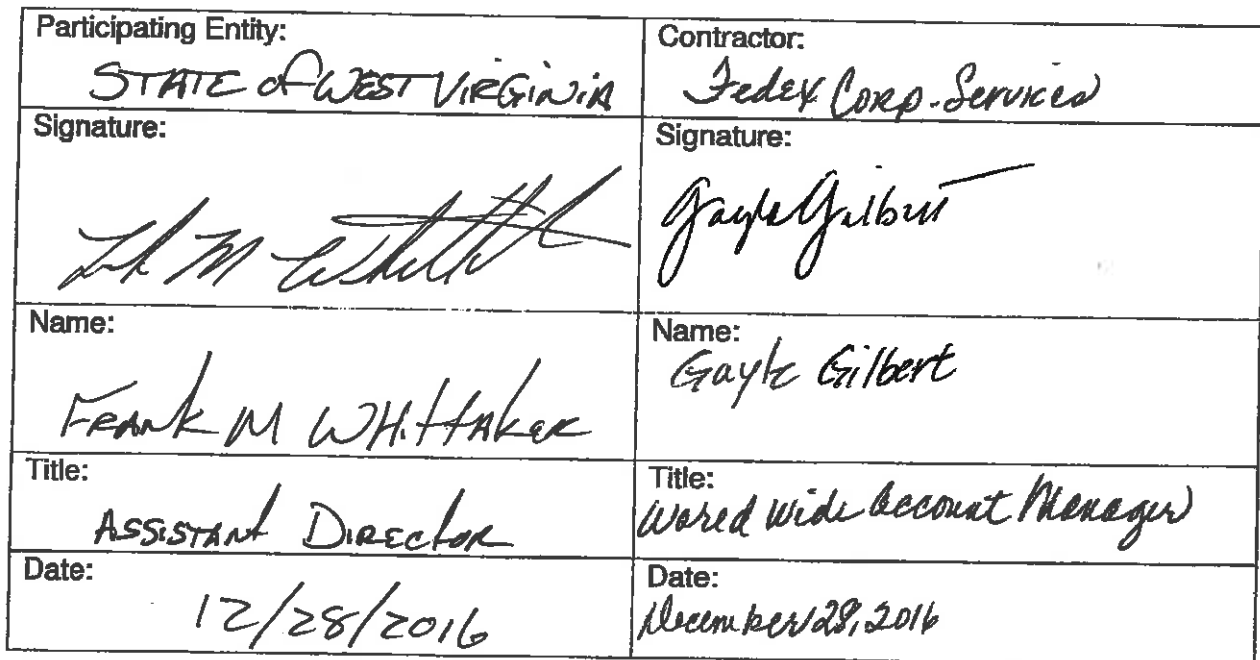 Participating Entity:
STATE of WEST VIRGINIA
Contractor:
Fedex Corp. Services
Signature:
Signature:
Gayle Gilbert
Name:
FRANK M WHittAker
Name:
Gayle Gilbert
Title:
ASSISTANT DIRECTOR
Title:
World Wide Account Manager
Date:
12/28/2016
Date:
December 28, 2016